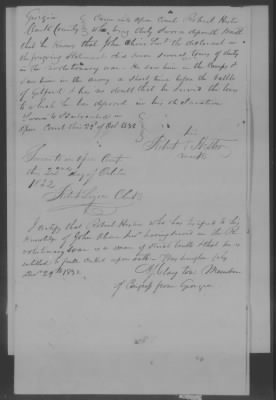 Georgia } Came into open Court Robert Hester
Clarke County } who being duly sworn deposeth & saith
that he knows that John Senr. the declarant in
the foregoing Statement did serve several tours of duty
in the revolutionary war. He saw him in the Camp &
saw him in the army a short time before the battle
of Gilford & has no doubt that he served the tours
which he has deposed in his declaration
Sworn to & Subscribed in
open Court this 22d of Oct 1832
his
Robert Hester
mark
Sworn to in open Court
this 22nd day of October
1832
Clerk
I certify that Robert Hester who has testified to his
knowledge of John Senr. having served in the Re
volutionary War is a man of & that he is
entitled to full credit upon oath. Washington City
Decr. 29th 1832.
Clayton Member
of Congress from Georgia